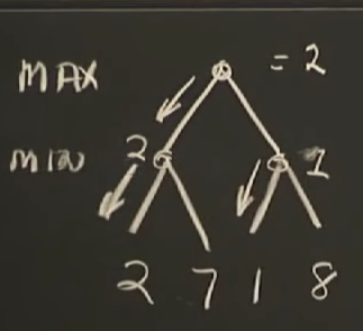 = 2
MAX
MIN 2 1
2 7 1 8